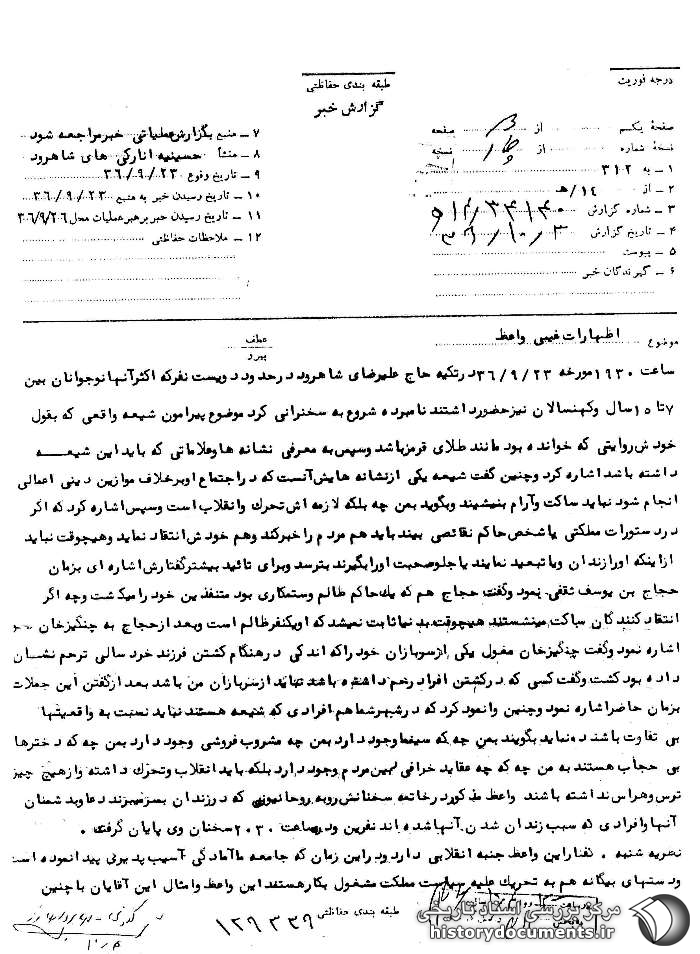 درجه فوریت
طبقه بندی حفاظتی
گزارش خبر
صفحهٔ یکم از صفحه
نسخهٔ شماره از نسخه
۱ ـ به ۳۱۲
۲ ـ از ۱۴/هـ
۳ ـ شماره گزارش
۴ ـ تاریخ گزارش ۳۶/۱۰/۳
۵ ـ پیوست
۶ ـ گیرندگان خبر
۷ ـ منبع بگزارش عملیاتی خبر مراجعه شود
۸ ـ منشأ حسینیه انارکی های شاهرود
۹ ـ تاریخ وقوع ۳۶/۹/۲۳
۱۰ ـ تاریخ رسیدن خبر به منبع ۳۶/۹/۲۳
۱۱ ـ تاریخ رسیدن خبر برهبر عملیات محل ۳۶/۹/۲۶
۱۲ ـ ملاحظات حفاظتی
موضوع اظهارات غیبی واعظ
عطف
پیرو
ساعت ۱۹۳۰ مورخه ۳۶/۹/۲۳ در تکیه حاج علیرضای شاهرود در حدود دویست نفر که اکثر آنها نوجوانان بین
۷ تا ۱۵ سال و کهنسالان نیز حضور داشتند نامبرده شروع به سخنرانی کرد موضوع پیرامون شیعه واقعی که بقول
خودش روایتی که خوانده بود مانند طلای قرمز باشد و سپس به معرفی نشانه ها و علاماتی که باید این شیعه
داشته باشد اشاره کرد و چنین گفت شیعه یکی از نشانه هایش آنست که در اجتماع او بر خلاف موازین دینی اعمالی
انجام شود نباید ساکت و آرام بنشیند و بگوید بمن چه بلکه لازمه اش تحرک و انقلاب است و سپس اشاره کرد که اگر
در دستورات مملکتی یا شخص حاکم نقائصی بیند باید هم مردم را خبر کند و هم خودش انتقاد نماید و هیچوقت نباید
از اینکه او را زندان و یا تبعید نمایند یا جلو صحبت او را بگیرند بترسد و برای تائید بیشتر گفتارش اشاره ای بزمان
حجاج بن یوسف ثقفی نمود و گفت حجاج هم که یک حاکم ظالم و ستمکاری بود متنفذین خود را میکشت و چه اگر
انتقاد کنندگان ساکت مینشستند هیچوقت بد نیا ثابت نمیشد که اویکنفر ظالم است و بعد از حجاج به چنگیزخان
اشاره نمود و گفت چنگیزخان مغول یکی از سربازان خود را که اندکی در هنگام کشتن فرزند خرد سالی ترحم نشان
داده بود کشت و گفت کسی که در کشتن افراد رحم داشته باشد نباید از سربازان من باشد بعد از گفتن این جملات
بزمان حاضر اشاره نمود و چنین وانمود کرد که در شهر شما هم افرادی که شیعه هستند نباید نسبت به واقعیتها
بی تفاوت باشند و نباید بگویند بمن چه که سینما وجود دارد بمن چه مشروب فروشی وجود دارد بمن چه که دخترها
بی حجاب هستند به من چه که چه عقاید خرافی بین مردم وجود دارد بلکه باید انقلاب و تحرک داشته و از هیچ چیز
ترس و هراس نداشته باشند واعظ مذکور در خاتمه سخنانش رو به روحانیونی که در زندان بسر میبرند دعا و بدشمنان
آنها و افرادی که سبب زندان شدن آنها شده اند نفرین و در ساعت ۲۰۳۰ سخنان وی پایان گرفت .
نظریه شنبه . گفتار این واعظ جنبه انقلابی دارد و در این زمان که جامعه ما آمادگی آسیب پذیری پیدا نموده است
و دستهای بیگانه هم به تحریک علیه مملکت مشغول بکار هستند این واعظ و امثال این آقایان با چنین
طبقه بندی حفاظتی
۱۲۹۳۳۹
مرکز بررسی اسناد تاریخی
historydocuments.ir